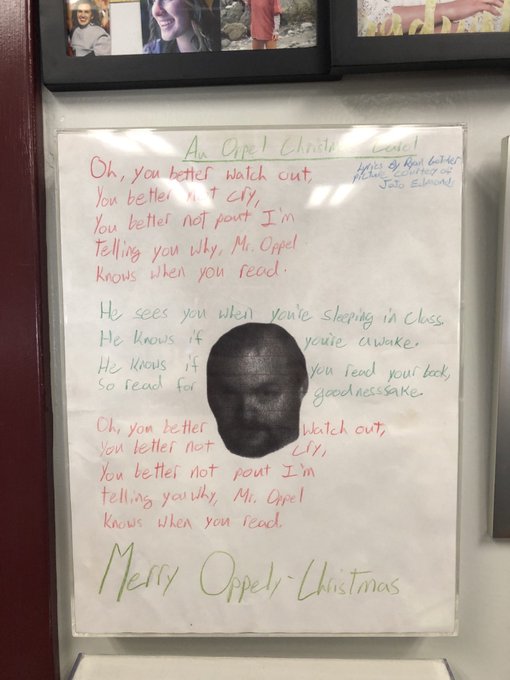 An Oppel Christmas Carol
Lyrics By Ryan
Picture courtesy of
JoJo Edmonds
Oh, you better watch out,
You better not cry,
You better not pout I'm
telling you why, Mr. Oppel
Knows when you read.
He sees you when you're sleeping in class.
He knows if you're awake.
He knows if you read your book,
so read for goodnesssake.
Oh, you better watch out,
You better not cry,
You better not pout I'm
telling you why, Mr. Oppel
Knows when you read.
Merry Oppely-Christmas